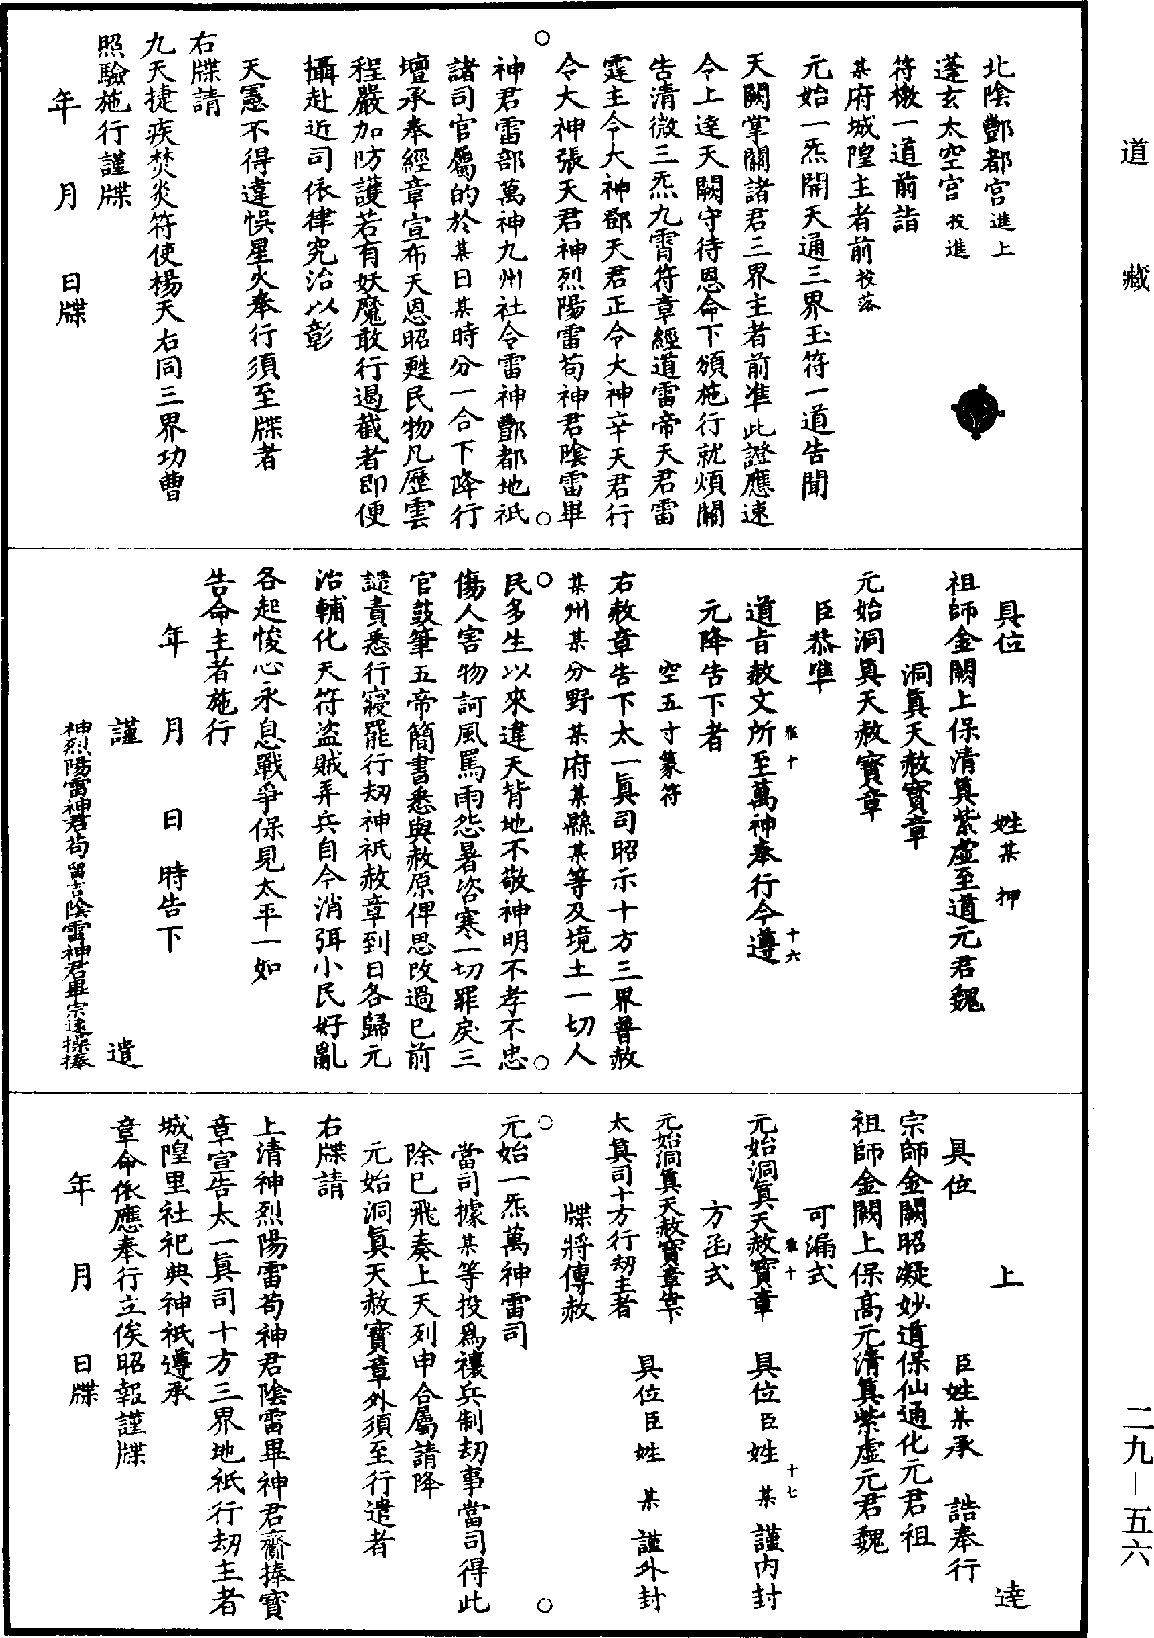 道藏
北陰酆都宮進上
蓬玄太空宫投進
符檄一道前詣
某府城隍主者前投落
元始一炁開天通三界玉符一道告聞
天闕掌關諸君三界主者前准此證應速
令上達天闕守待恩命下頒施行就煩關
告清微三炁九霄符章經道雷帝天君雷
霆主令大神鄧天君正令大神辛天君行
令大神張天君神烈陽雷苟神君陰雷畢
神君雷部萬神九州社令雷神酆都地祇
諸司官屬的於某日某時分一合下降行
壇承奉經章宣布天恩昭甦民物凡歷雲
程嚴加防護若有妖魔敢行遏截者即便
攝赴近司依律究治以彰
天憲不得違悞星火奉行須至牒者
右牒請
九天捷疾焚炎符使楊天右同三界功曹
照驗施行謹牒
年 月 日牒
具位 姓某 押
祖師金闕上保清真紫虛至道元君魏
洞真天赦寶章
元始洞真天赦寶章
臣恭準
雅十 十六
道旨赦文所至萬神奉行今遵
元降告下者
空五寸篆符
右赦章告下太一真司昭示十方三界普赦
某州某分野某府某縣某等及境土一切人
民多生以來違天背地不敬神明不孝不忠
傷人害物訶風罵雨怨暑咨寒一切罪戾三
官鼓筆五帝簡書悉與赦原俾思改過已前
譴責悉行寢罷行劫神祇赦章到日各歸元
治輔化天符盜賊弄兵自今消弭小民好亂
各起悛心永息戰爭保見太平一如
告命主者施行
年 月 日 時告下
謹 遣
神烈陽雷神君苟留吉陰雷神君畢宗遠捧
上 達
具位 臣姓某承 誥奉行
宗師金闕昭凝妙道保仙通化元君祖
祖師金闕上保高元清真紫虛元君魏
可漏式
雅十 十七
元始洞真天赦寶章 具位臣姓 某 謹内封
方函式
元始洞真天赦寶章葉 具位臣 姓 某 謹外封
太真司十方行劫主者
牒將傳赦
元始一炁萬神雷司
當司據某等投爲禳兵制劫事當司得此
除已飛奏上天列申合屬請降
元始洞真天赦寶章外須至行遣者
右牒請
上清神烈陽雷苟神君陰雷畢神君齎捧寶
章宣告太一真司十方三界地祇行劫主者
城隍里社祀典神祇遵承
章命依應奉行立俟昭報謹牒
年 月 日牒
二九—五六